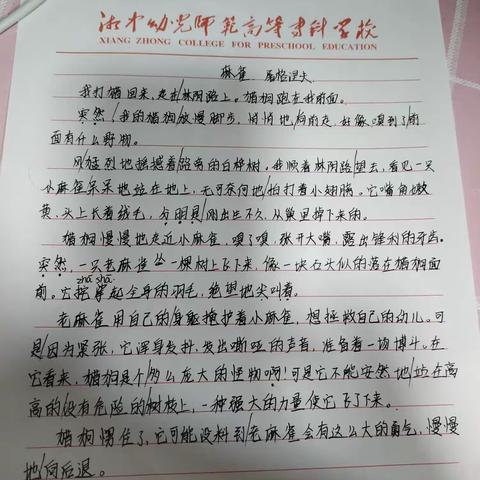 湘中幼儿师范高等专科学校
XIANG ZHONG COLLEGE FOR PRESCHOOL EDUCATION
麻雀 屠格涅夫
我打猎回来,走在/林阴路上。猎狗跑在我前面。
突然,我的猎狗/放慢脚步,悄悄地/向前走,好像嗅到了/前
面有什么野物。
风/猛烈地摇撼着/路旁的白桦树。我顺着林阴路/望去,看见一只
小麻雀呆呆地站在地上,无可奈何地/拍打着小翅膀。它嘴角嫩
黄,头上长着绒毛,分明是/刚出生不久,从巢里掉下来的。
猎狗慢慢地走近小麻雀,嗅了嗅,张开大嘴,露出锋利的牙齿。
突然,一只老麻雀从一棵树上飞下来,像一块石头似的落在猎狗面
zhā shā
前。它挓挲起全身的羽毛,绝望地尖叫着。
老麻雀用自己的身躯掩护着小麻雀,想拯救自己的幼儿。可
是/因为紧张,它浑身发抖,发出嘶哑的声音,准备着一场搏斗。在
它看来,猎狗是个/多么庞大的怪物啊!可是它不能安然地/站在高
高的/没有危险的/树枝上,一种强大的力量使它飞了下来。
猎狗愣住了,它可能没料到/老麻雀会有这么大的勇气,慢慢
地/向后退。